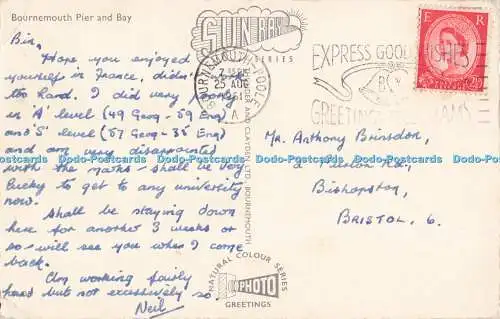 Bournemouth Pier and Bay
SUN RAY
SERIES
Bin,
Hope you enjoyed
yourself in France, didn't
too hard. I did very poorly
in 'A' level (49 Geog - 59 Eng)
and 'S' level (57 Geog - 35 Eng)
and am very disappointed
with the marks - shall be very
lucky to get to any university
now.
Shall be staying down
here for another 3 weeks or
so - will see you when I come
back.
Am working fairly
hard but not excessively so.
Neil
BOURNEMOUTH-POOLE
25 AUG
1961
A
EXPRESS GOOD WISHES
BY
GREETINGS TELEGRAMS
E R
POSTAGE
2½D
Mr. Anthony Brinsdon,
2 Rd.,
Bishopston,
BRISTOL. 6.
AND CLAYDEN, LTD., BOURNEMOUTH
NATURAL COLOUR SERIES
PHOTO
GREETINGS
www.postcard-world.co.uk